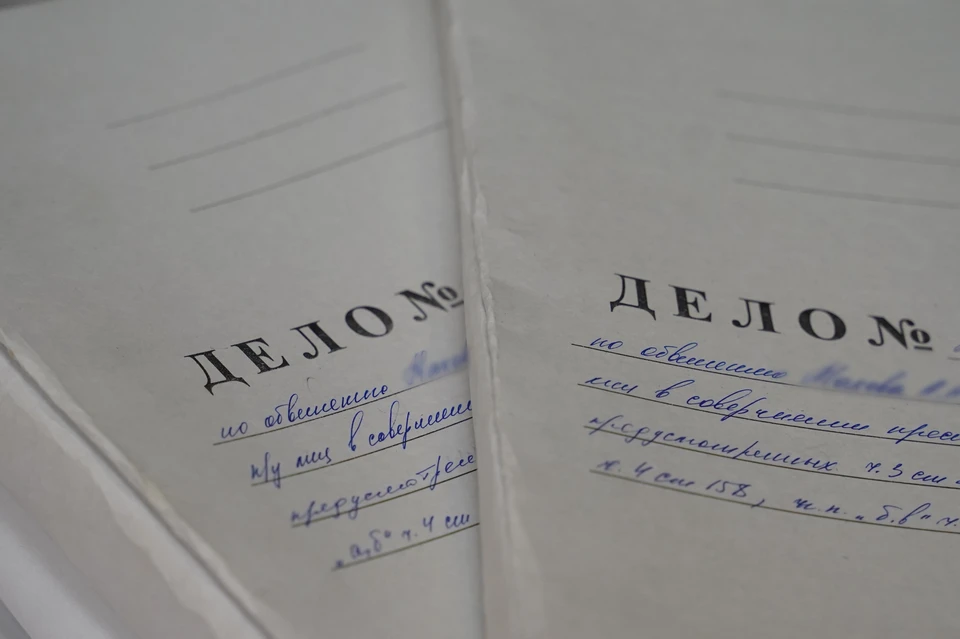 ДЕЛО №
по обвинению
гр лиц в совершении
предусмотрен
"а,б" ч. 4 ст
ДЕЛО №
по обвинению
лиц в совершении прес
предусмотренных ч. 3 ст
ч. 4 ст 158, п.п. "б,в" ч.